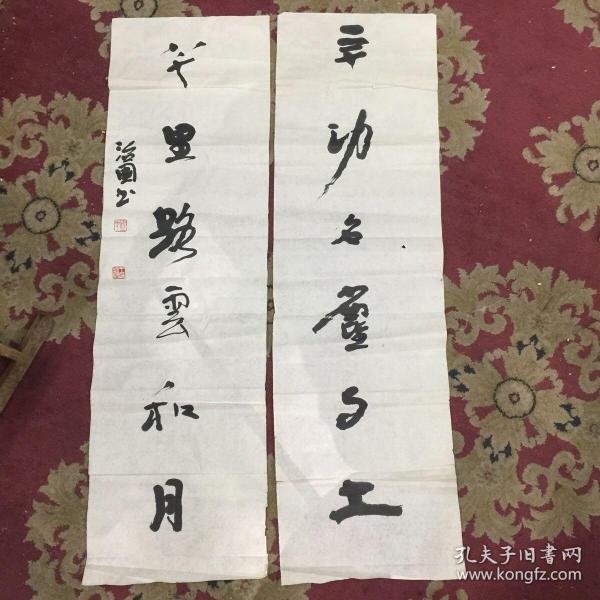 三十功名塵与土
八千里路雲和月
治國书
孔夫子旧书网
www.kongfz.com